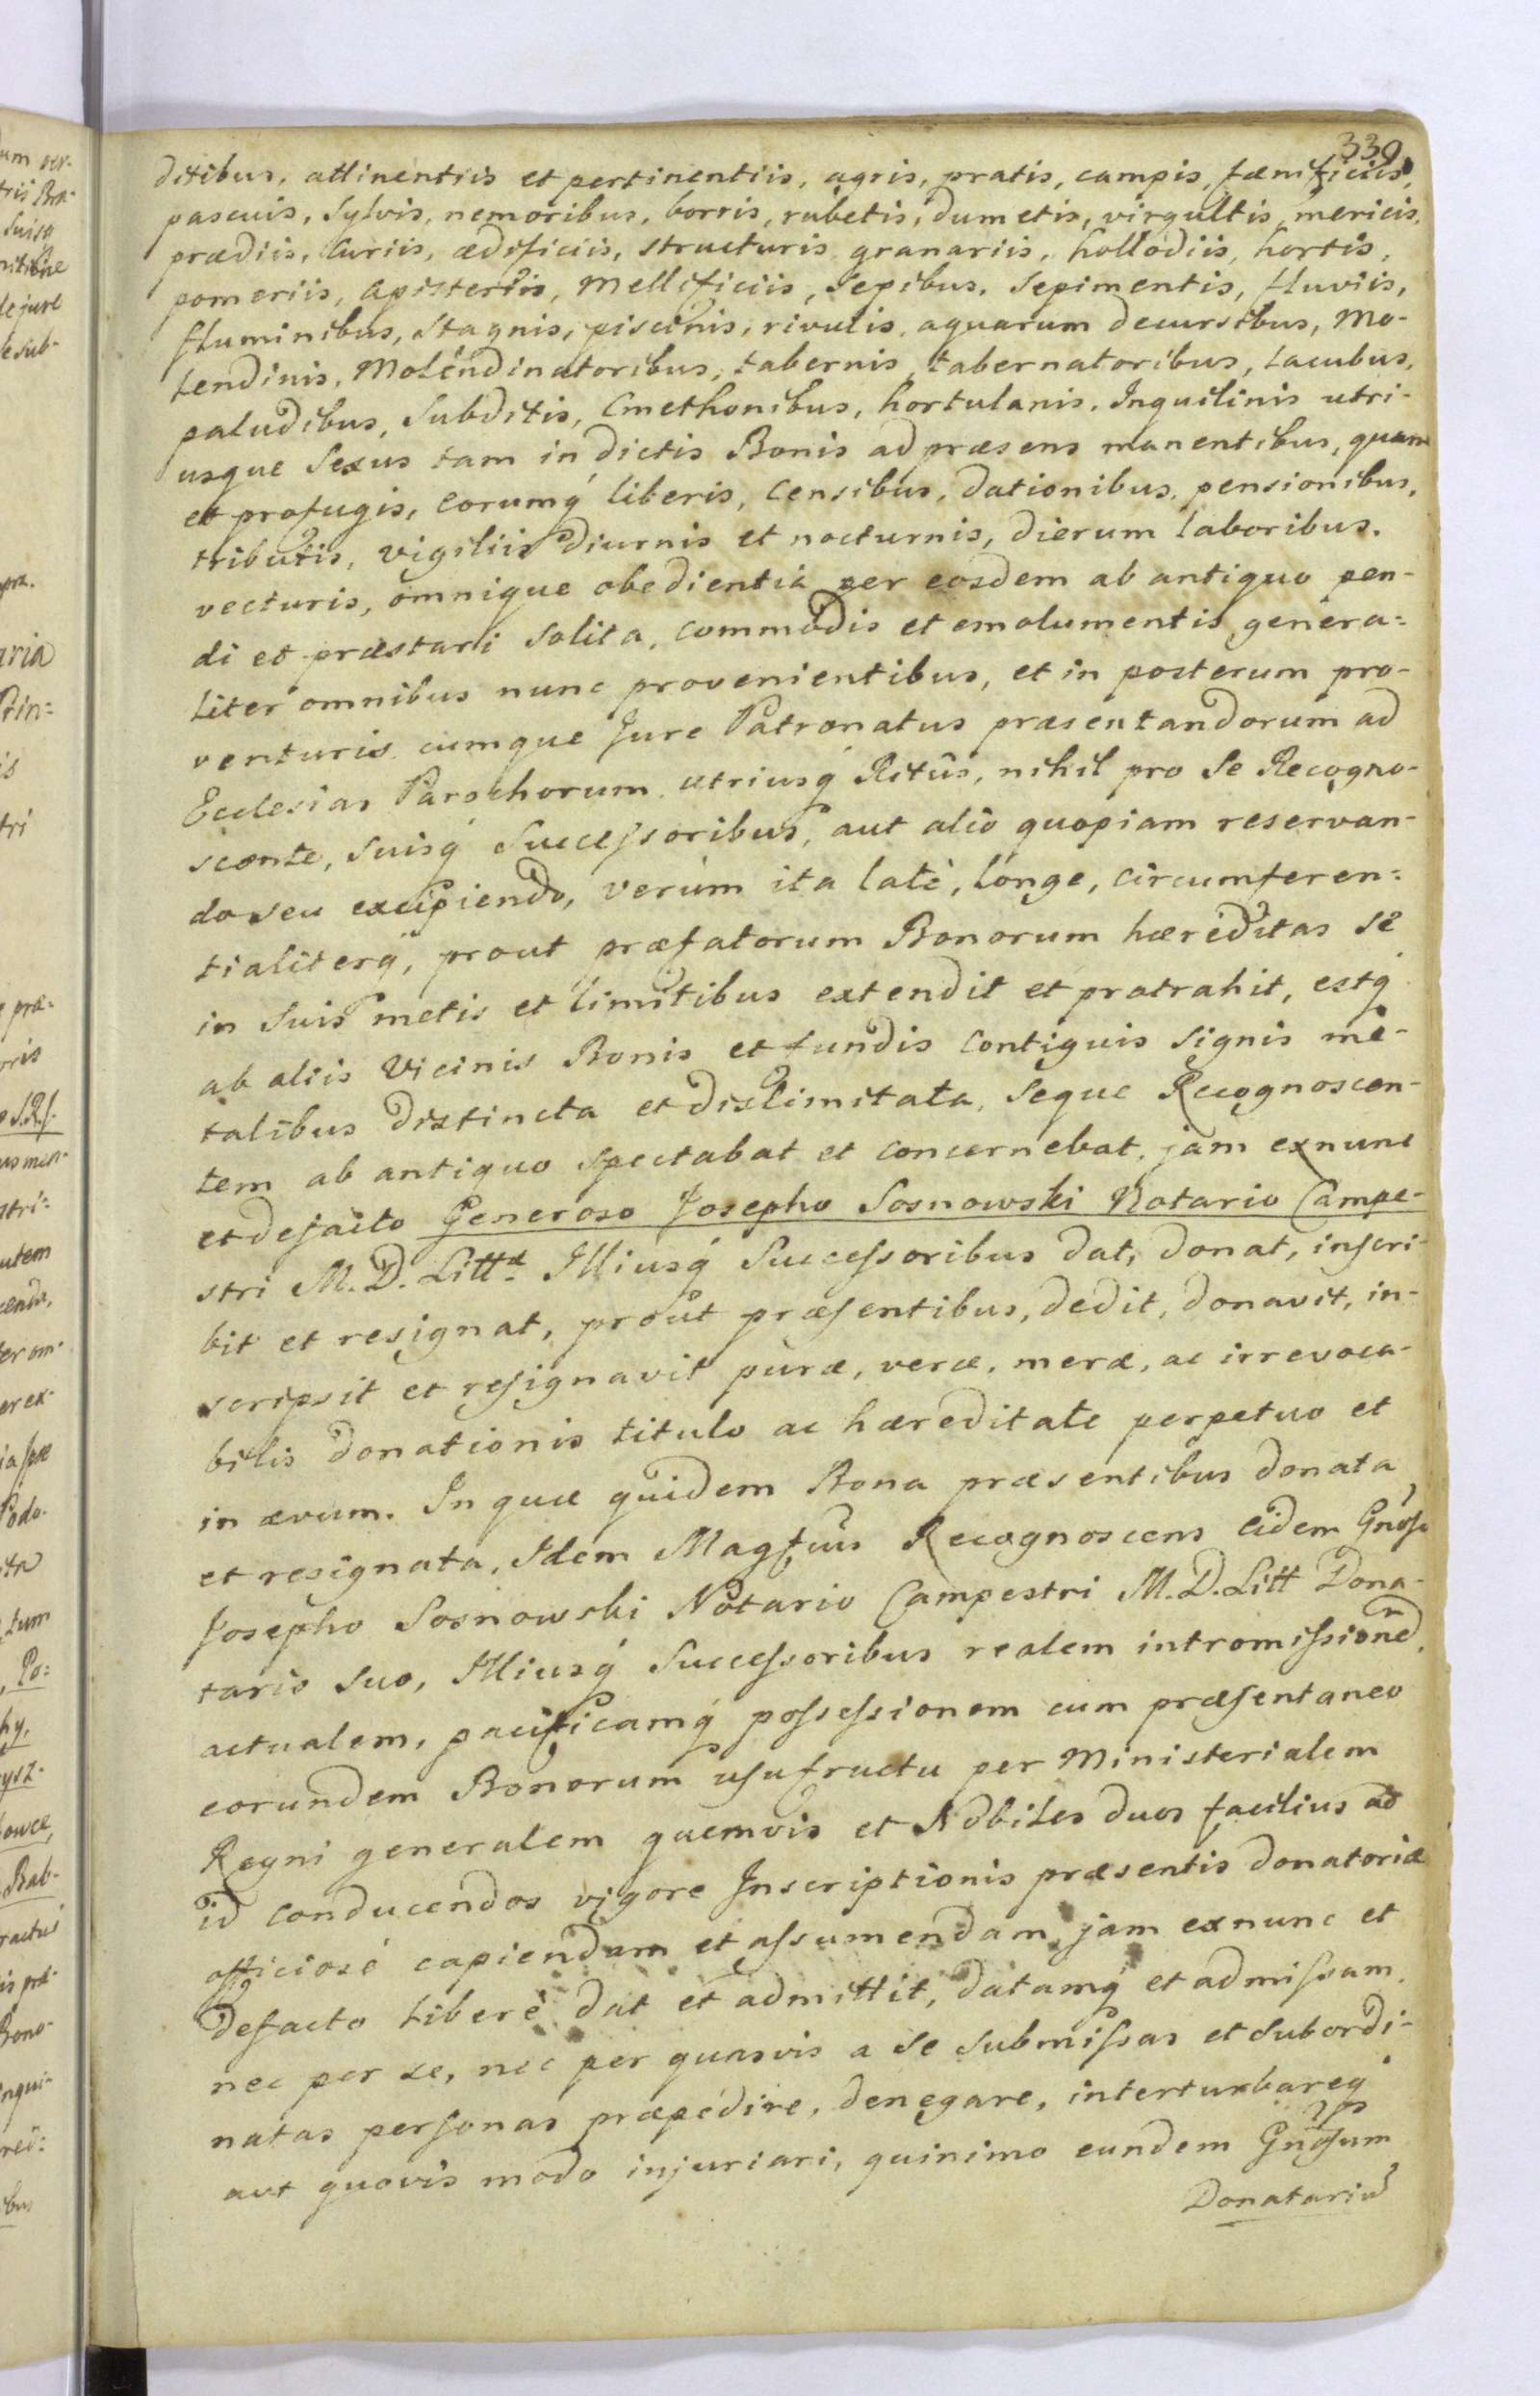 339
ditibus, attinentiis et pertinentiis, agris, pratis, campis, fænificiis,
pascuis, sylvis, nemoribus, borris, rubetis, dumetis, virgultis, mericis,
prædiis, Curiis, ædificiis, structuris, granariis, hollodiis, hortis,
pomeriis, apisteriis, Mellificiis, Sepibus, Sepimentis, fluviis,
fluminibus, stagnis, piscinis, rivulis, aquarum decursibus, Mo-
lendinis, Molendinatoribus, tabernis, tabernatoribus, lacubus,
paludibus, Subditis, Cmethonibus, hortulanis, Inquilinis utri-
usque Sexus tam in dictis Bonis ad præsens manentibus, quam
et profugis, eorumq́ liberis, Censibus, dationibus, pensionibus,
tributis, vigiliis diurnis et nocturnis, dierum laboribus,
vecturis, omnique obedientia per eosdem ab antiquo pen-
di et præstari solita, commodis et emolumentis genera=
liter omnibus nunc provenientibus, et in posterum pro-
venturis, cumque Jure Patronatus præsentandorum ad
Ecclesias Parochorum utriusq́ Ritûs, nihil pro Se Recogno-
scente, suisq́ Successoribus, aut alio quopiam reservan-
do seu excipiendo, verùm ita latè, longe, circumferen=
tialiterq́, prout præfatorum Bonorum hæreditas se
in suis metis et limitibus extendit et protrahit, estq́
ab aliis Vicinis Bonis et fundis Contiguis Signis me-
talibus distincta et dislimitata, Seque Recognoscen-
tem ab antiquo spectabat et concernebat, jam exnunc
et defacto Generoso Josepho Sosnowski Notario Campe-
stri M. D. Litt. Illiusq́ Successoribus dat, donat, inscri-
bit et resignat, prout præsentibus, dedit, donavit, in-
scripsit et resignavit puræ, veræ, meræ, ac irrevoca-
bilis donationis titulo ac hæreditate perpetuo et
in ævum. In quæ quidem Bona præsentibus donata
et resignata, Idem Magfcus Recognoscens eidem Gnoso
Josepho Sosnowski Notario Campestri M. D. Litt Dona-
tario suo, Illiusq́ Successoribus realem intromissionẽ,
actualem, pacificamq́ possessionem cum præsentaneo
eorundem Bonorum usufructu per Ministerialem
Regni generalem quemvis et Nobiles duos facilius ad
id conducendos vigore Inscriptionis præsentis donatoriæ
officiosè capiendam et assumendam jam exnunc et
defacto liberè dat et admittit, datamq́ et admissam,
nec per se, nec per quasvis a se submissas et subordi-
natas personas præpedire, denegare, interturbareq́
aut quovis modo injuriari, quinimo eundem Gnosum
Donatariũ